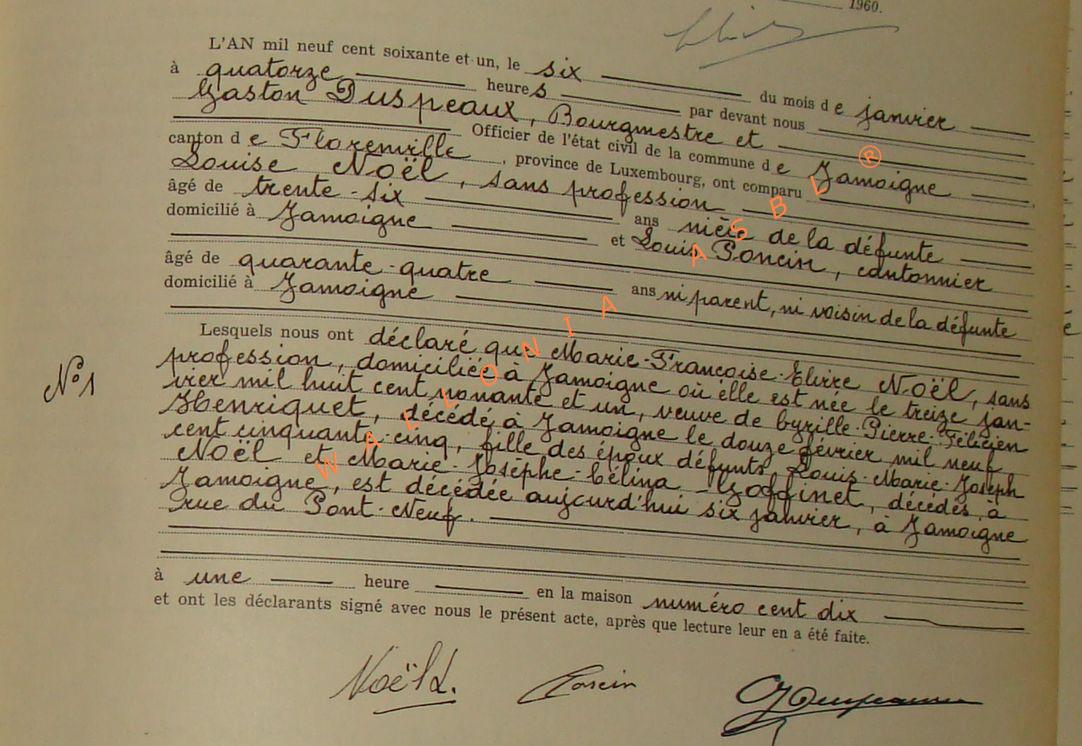 1960.
L'AN mil neuf cent soixante et un, le six du mois de janvier
à quatorze heures par devant nous
Gaston Duspeaux, Bourgmestre et
Officier de l'état civil de la commune de Jamoigne
canton de Florenville, province de Luxembourg, ont comparu
Louise Noël, sans profession
âgé de trente-six ans nièce de la défunte
domicilié à Jamoigne et Louis Poncin, cantonnier
âgé de quarante-quatre ans ni parent, ni voisin de la défunte
domicilié à Jamoigne
Lesquels nous ont déclaré que Marie-Françoise-Elvire Noël, sans
profession, domiciliée à Jamoigne où elle est née le treize jan-
vier mil huit cent nonante et un, veuve de Cyrille-Pierre-Félicien
Henriquet, décédé à Jamoigne le douze février mil neuf
cent cinquante-cinq, fille des époux défunts Louis-Marie-Joseph
Noël et Marie-Josèphe-Célina Goffinet, décédés à
Jamoigne, est décédée aujourd'hui six janvier, à Jamoigne
rue du Pont-Neuf.
N°1
à une heure en la maison numéro cent dix
et ont les déclarants signé avec nous le présent acte, après que lecture leur en a été faite.
Noël L. Poncin
WALLONIA ASBL ®